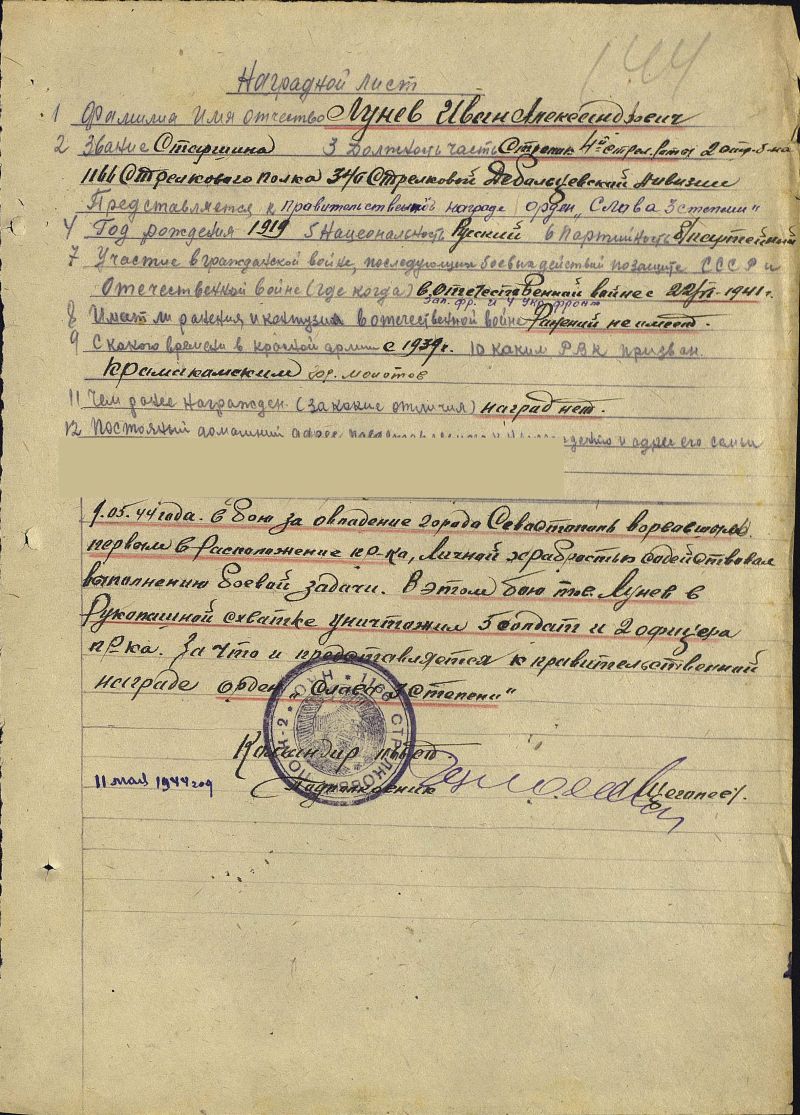 144
Наградной лист
1 Фамилия Имя отчество Лунев Иван Александрович
2 Звание Старшина 3 Должность часть Стрелок 4й стрел. роты 2 стр. б-на
1166 Стрелкового полка 346 Стрелковой Дебальцевской Дивизии
Представляется к Правительственной награде орден "Слава 3 степени"
4 Год рождения 1919 5 Национальность Русский 6 Партийность б/партейный
7 Участие в гражданской войне, последующих боевых действий по защите СССР и
Отечественной войне (где когда) в Отечественной войне с 22/VI-1941 г.
зап. фр. и 4 Укр. фронт
8 Имеет ли ранения и контузии в отечественной войне Ранений не имеет.
9 С какого времени в красной армии с 1939 г. 10 каким РВК призван.
Крамакамским гор. Молотов
11 Чем ранее награжден (за какие отличия) наград нет.
12 Постоянный домашний адрес и адрес его семьи
9.05.44 года. в бою за овладение города Севастополь ворвавшись
первым в расположение пр-ка, личной храбростью содействовал
выполнению боевой задачи. В этом бою тов. Лунев в
рукопашной схватке уничтожил 5 солдат и 2 офицера
пр-ка. За что и представляется к правительственной
награде орден "Слава 3 степени"
Командир
11 мая 1944 год Подполковник
1166 СТРЕЛКОВЫЙ ПОЛК